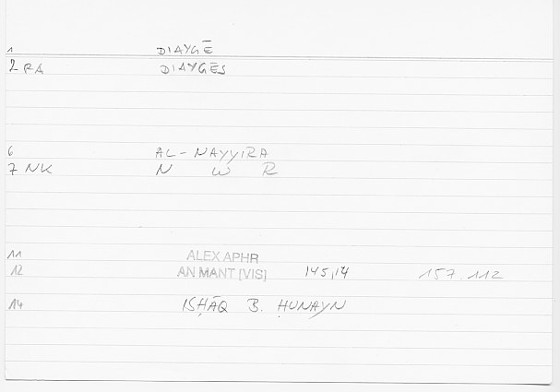 1 DIAYGĒ
2 RA DIAYGĒS
6 AL-NAYYIRA
7 NK N W R
11 ALEX APHR
12 AN MANT [VIS] 145,14 157,112
14 ISḤĀQ B. ḤUNAYN